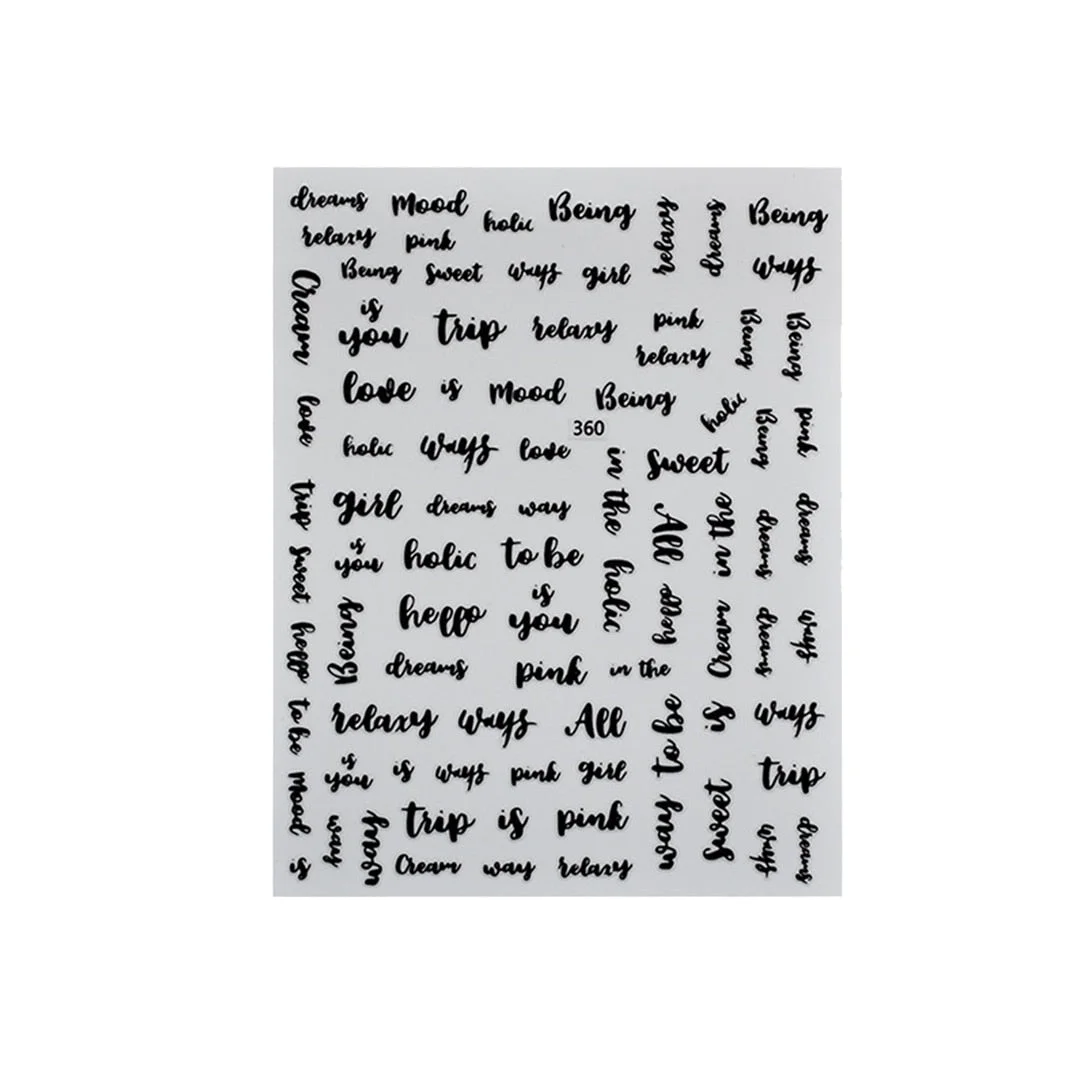 dreams Mood holic Being relaxy dreams Being
relaxy pink
Being sweet ways girl ways
Cream is you trip relaxy pink Being Being
relaxy
love is Mood Being holic
love 360 Being pink
holic ways love in the sweet
trip girl dreams way All in the dreams dreams
sweet is you holic to be holic
hello Being hello is you hello Cream dreams ways
dreams pink in the
to be relaxy ways All way to be is ways
Mood is you is ways pink girl trip
is way way trip is pink sweet ways dreams
Cream way relaxy